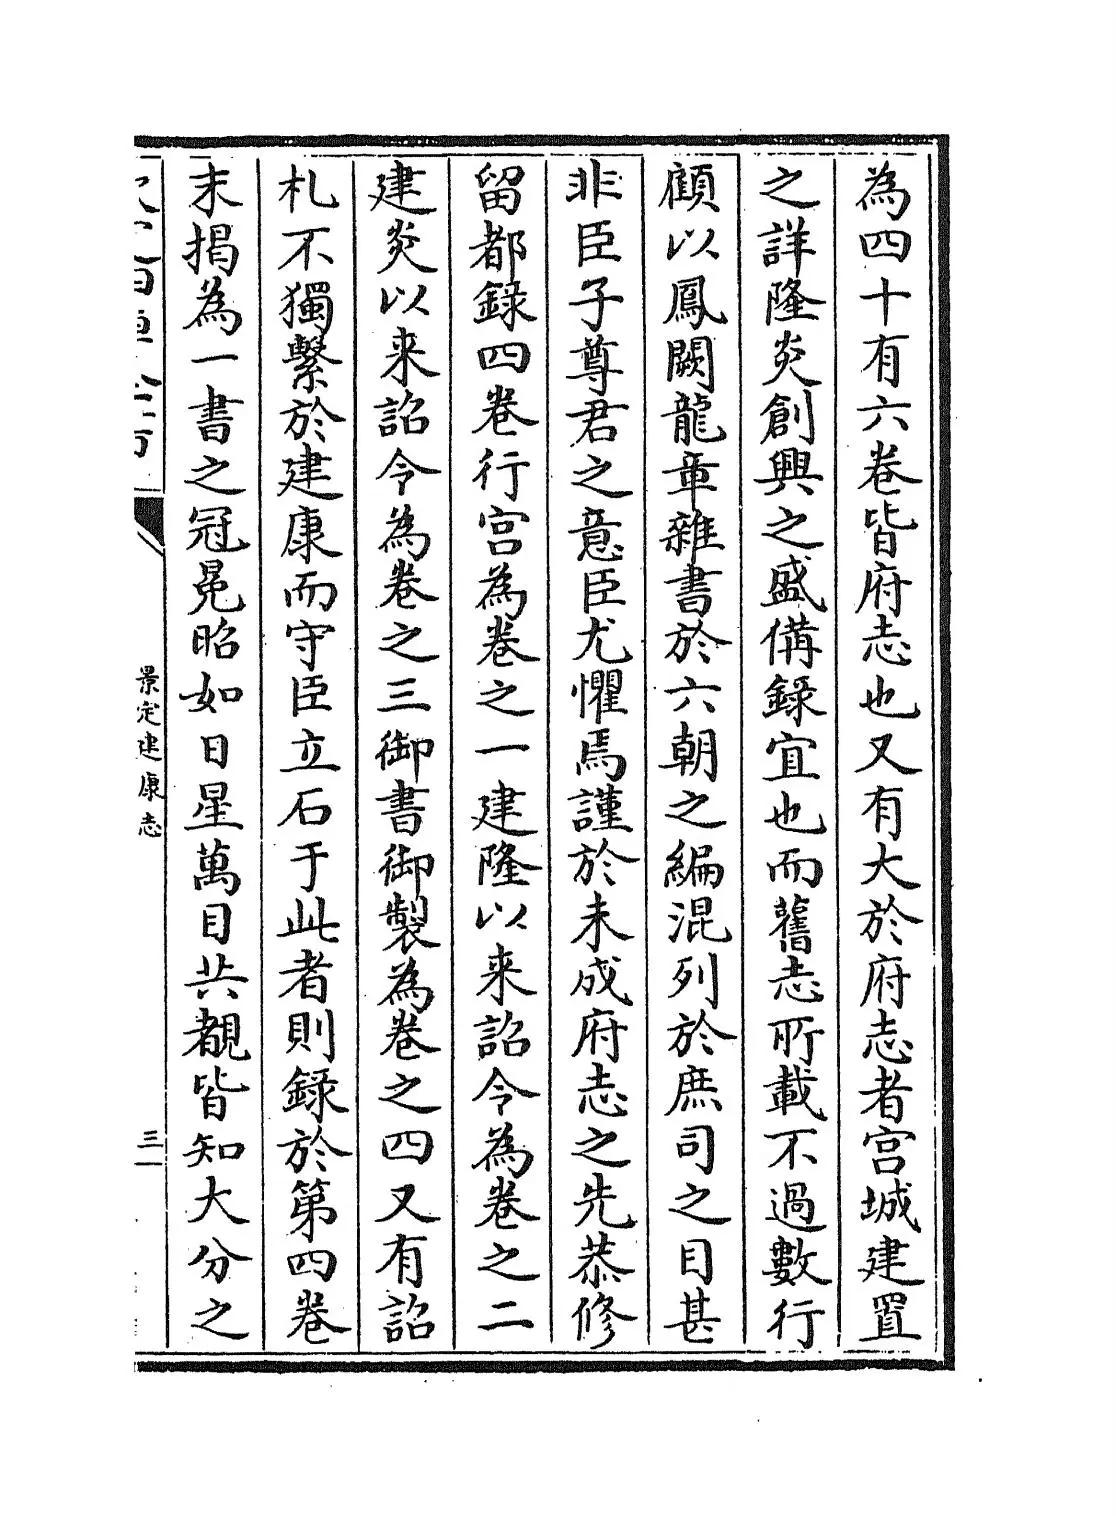 為四十有六卷皆府志也又有大於府志者宫城建置
之詳隆炎創興之盛備錄宜也而舊志所載不過數行
顧以鳳闕龍章雜書於六朝之編混列於庶司之目甚
非臣子尊君之意臣尤懼焉謹於未成府志之先恭修
留都錄四卷行宫為卷之一建隆以来詔令為卷之二
建炎以来詔令為卷之三御書御製為卷之四又有詔
札不獨繫於建康而守臣立石于此者則錄於第四卷
末揭為一書之冠冕昭如日星萬目共覩皆知大分之
景定建康志
三